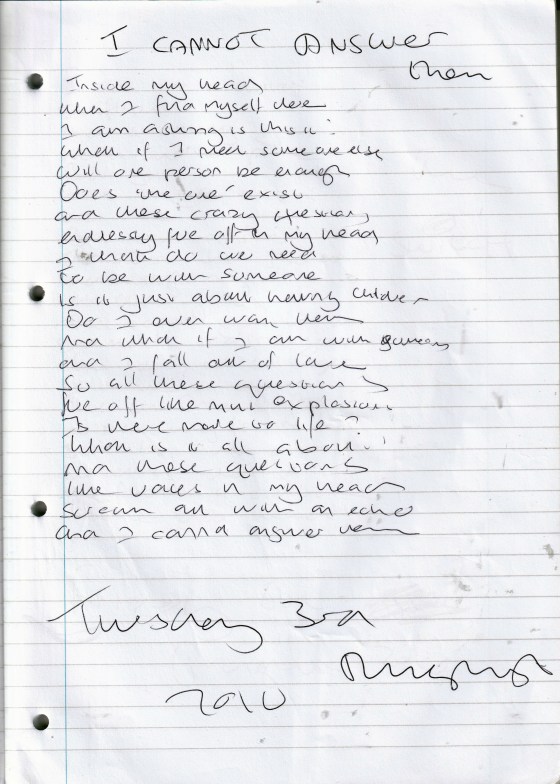 I CANNOT ANSWER
them
Inside my head
when I find myself there
I am asking is this it?
What if I meet someone else
will one person be enough
Does 'the one' exist
and these crazy questions
endlessly fire off in my head
I think do we need
to be with someone
Is it just about having children
Do I even want them
And what if I am with someone
and I fall out of love
So all these questions
fire off like mini explosions
Is there more to life?
What is it all about?
And these questions
like voices in my head
scream out with an echo
and I cannot answer them
Tuesday 3rd
August
2010